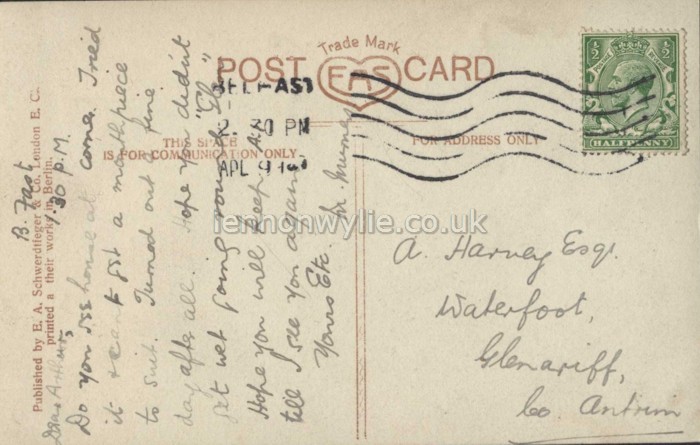 Trade Mark
POST CARD
EAS
THIS SPACE
IS FOR COMMUNICATION ONLY
FOR ADDRESS ONLY
Published by E. A. Schwerdtfeger & Co. London E. C.
printed a their works in Berlin.
BELFAST
2. 30 PM
APL 9
½
½
HALFPENNY
B. Fast
1.30 P.M.
Dear Arthur,
Do you see house at corner. Tried
it & can't get a mantlepiece
to suit. Turned out a fine
day after all. Hope you didn't
get wet going round
Hope you will keep
till I see you again
Yours Etc.
A. Harvey Esq.
Waterfoot,
Glenariff,
Co Antrim
lennonwylie.co.uk